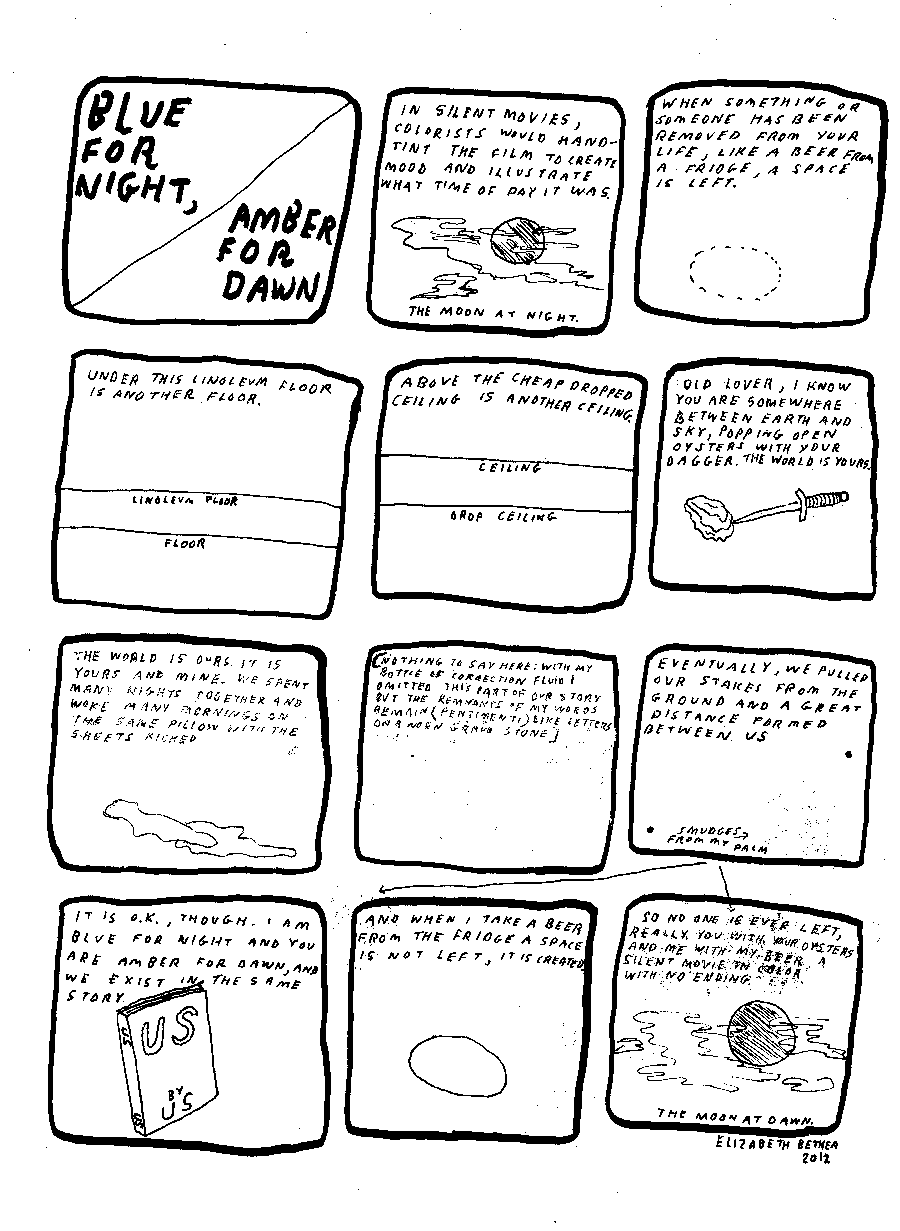 BLUE
FOR
NIGHT,
AMBER
FOR
DAWN
IN SILENT MOVIES,
COLORISTS WOULD HAND-
TINT THE FILM TO CREATE
MOOD AND ILLUSTRATE
WHAT TIME OF DAY IT WAS.
THE MOON AT NIGHT.
WHEN SOMETHING OR
SOMEONE HAS BEEN
REMOVED FROM YOUR
LIFE, LIKE A BEER FROM
A FRIDGE, A SPACE
IS LEFT.
UNDER THIS LINOLEUM FLOOR
IS ANOTHER FLOOR.
LINOLEUM FLOOR
FLOOR
ABOVE THE CHEAP DROPPED
CEILING IS ANOTHER CEILING.
CEILING
DROP CEILING
OLD LOVER, I KNOW
YOU ARE SOMEWHERE
BETWEEN EARTH AND
SKY, POPPING OPEN
OYSTERS WITH YOUR
DAGGER. THE WORLD IS YOURS.
THE WORLD IS OURS. IT IS
YOURS AND MINE. WE SPENT
MANY NIGHTS TOGETHER AND
WOKE MANY MORNINGS ON
THE SAME PILLOW WITH THE
SHEETS KICKED
[NOTHING TO SAY HERE: WITH MY
BOTTLE OF CORRECTION FLUID I
OMITTED THIS PART OF OUR STORY
BUT THE REMNANTS OF MY WORDS
REMAIN (PENTIMENTI) LIKE LETTERS
ON A WORN GRAVE STONE]
EVENTUALLY, WE PULLED
OUR STAKES FROM THE
GROUND AND A GREAT
DISTANCE FORMED
BETWEEN US
SMUDGES
FROM MY PALM
IT IS O.K., THOUGH. I AM
BLUE FOR NIGHT AND YOU
ARE AMBER FOR DAWN, AND
WE EXIST IN THE SAME
STORY.
US
US
BY
US
US
AND WHEN I TAKE A BEER
FROM THE FRIDGE A SPACE
IS NOT LEFT, IT IS CREATED.
SO NO ONE IS EVER LEFT,
REALLY. YOU WITH YOUR OYSTERS
AND ME WITH MY BEER. A
SILENT MOVIE IN COLOR
WITH NO ENDING.
THE MOON AT DAWN.
ELIZABETH BETHEA
2012